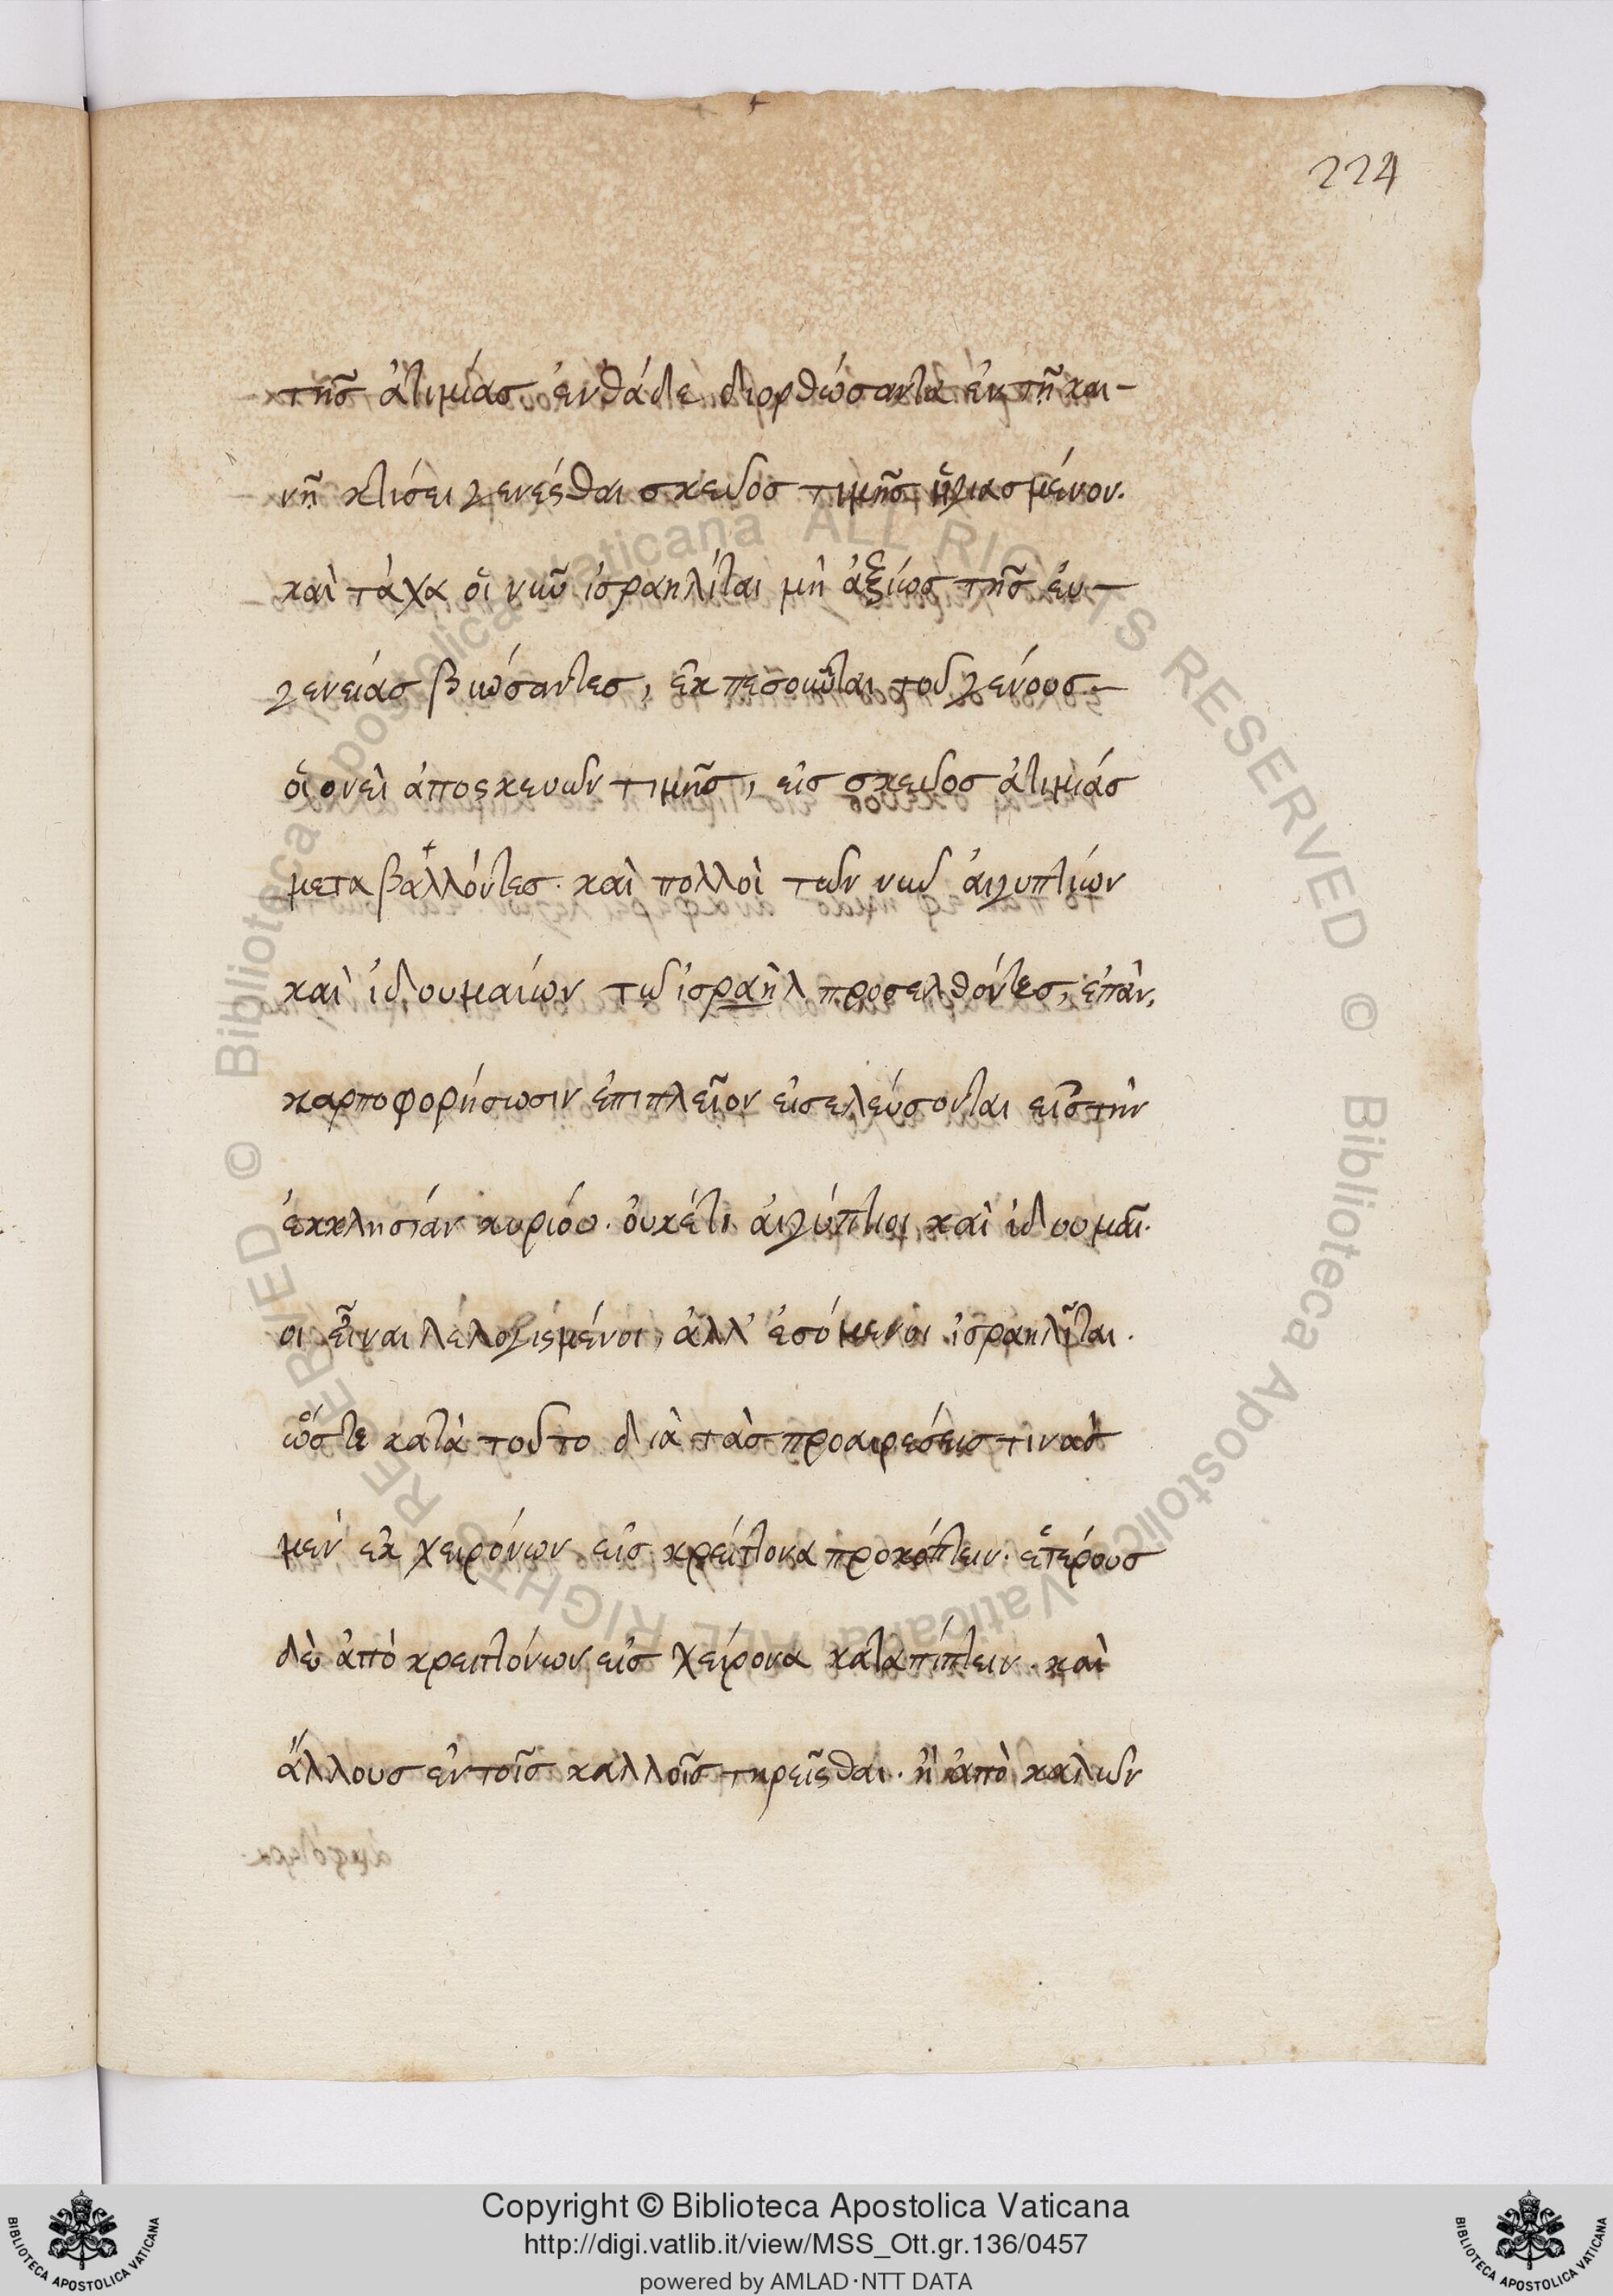 224
τῆσ ἀτιμίασ ἐνθάδε διορθώσαντα ἐν τῇ και-
νῇ κτίσει γενέσθαι σκεῦοσ τιμῆσ ἡγιασμένον.
καὶ τάχα οἱ νῦν ἰσραηλίται μὴ ἀξίωσ τῆσ ἐυ-
γενείασ βιώσαντεσ, ἐκπεσοῦνται τοῦ γένουσ.-
οἱονεὶ ἀπο σκευῶν τιμῆσ, εἰσ σκεῦοσ ἀτιμίασ
μεταβάλλόντεσ. καὶ πολλοὶ τῶν νῦν ἀιγυπτίων
καὶ ἰδουμαίων τῶ ἰσραὴλ προσελθόντεσ, ἐπὰν,
καρποφορήσωσιν ἐπιπλεῖον εἰσελεύσονται εἰσ τὴν
ἐκκλησίαν κυρίου. ὀυκέτι ἀιγύπτιοι καὶ ἰδουμαῖ.
οι εἶναι λελογισμένοι, ἀλλ' ἐσόμενοι ἰσραηλῖται.
ὥστε κατὰ τοῦτο διὰ τὰσ προαιρέσεισ τινὰσ
μεν ἐκ χειρόνων εἰσ κρείττονα προκόπτειν. ἑτέρουσ
δὲ ἀπὸ κρειττόνων εἰσ χείρονα καταπίπτειν. καὶ
ἄλλουσ ἐν τοῖσ καλλοῖσ τηρεῖσθαι. ἢ ἀπὸ καλῶν
Copyright © Biblioteca Apostolica Vaticana
http://digi.vatlib.it/view/MSS_Ott.gr.136/0457
powered by AMLAD·NTT DATA
BIBLIOTECA APOSTOLICA VATICANA
BIBLIOTECA APOSTOLICA VATICANA
© Biblioteca Apostolica Vaticana ALL RIGHTS RESERVED © Biblioteca Apostolica Vaticana ALL RIGHTS RESERVED